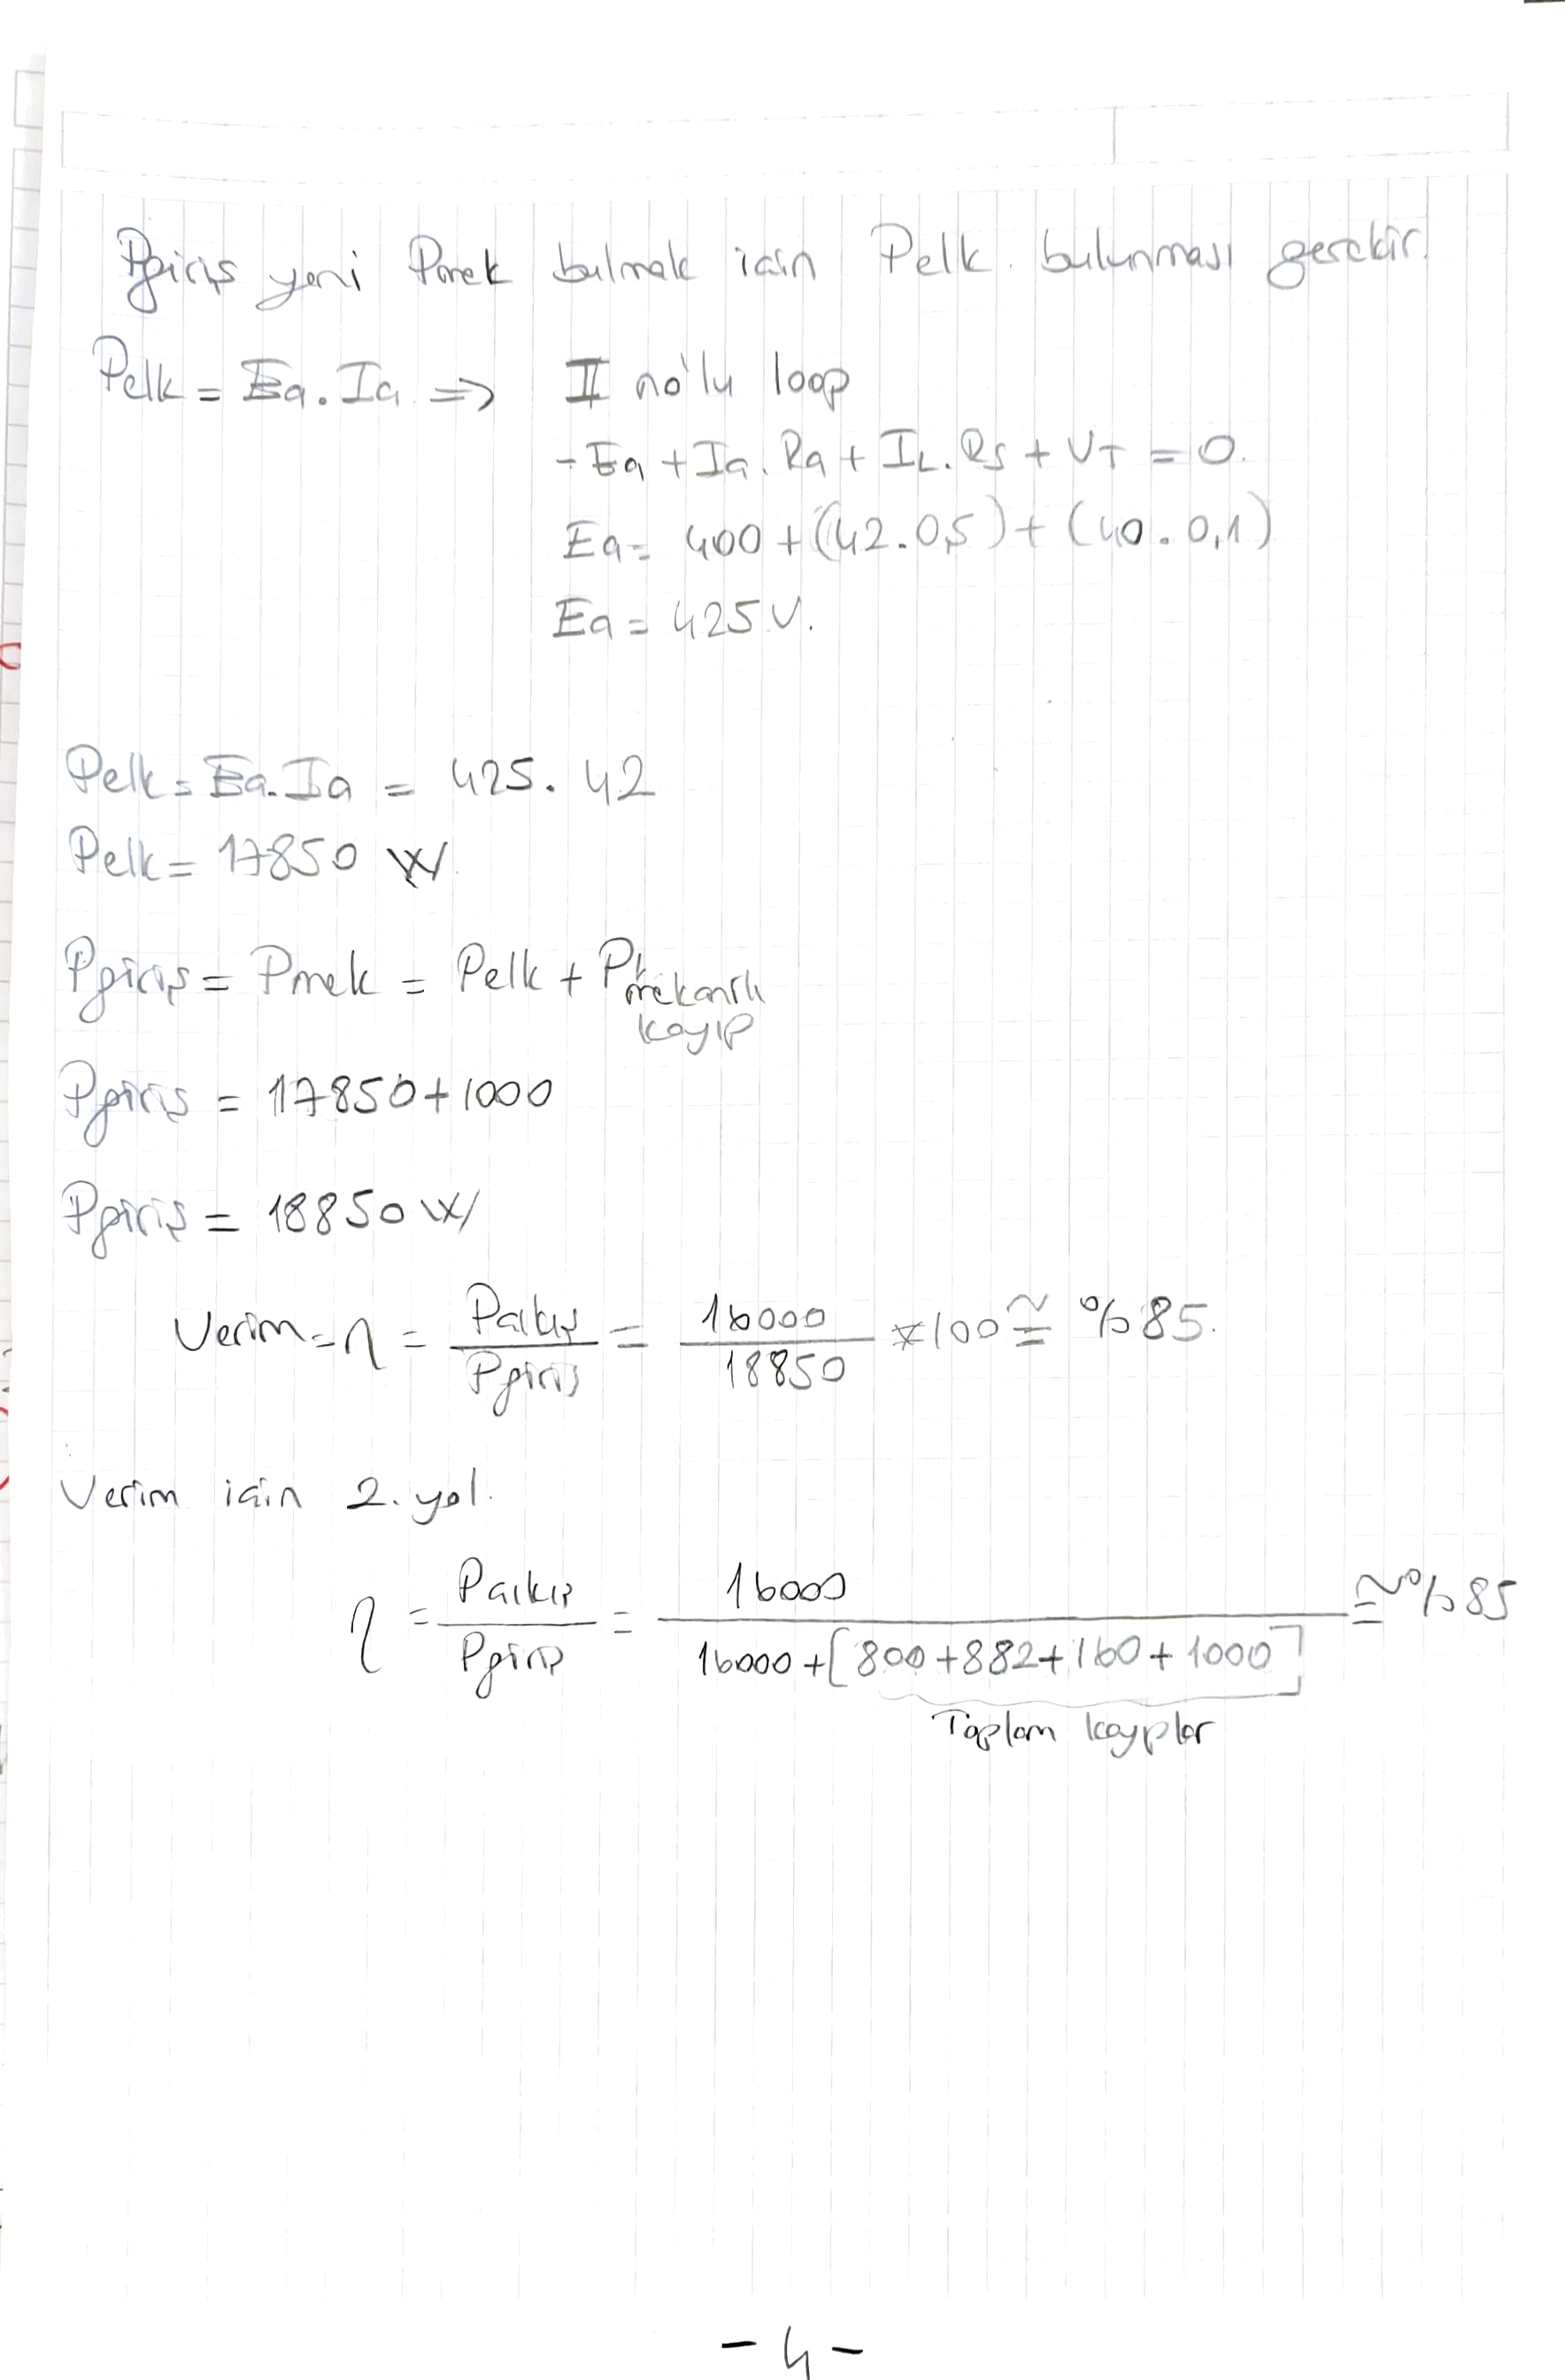 Pgiriş yeni Pmek bulmak için Pelk. bulunması gerekir.
Pelk = Ea.Ia => II no'lu loop
-Ea + Ia.Ra + IL.Rs + VT = 0.
Ea = 400 + (42.0,5) + (40.0,1)
Ea = 425 V.
Pelk = Ea.Ia = 425.42
Pelk = 17850 W
Pgiriş = Pmek = Pelk + Pmekanik kayıp
Pgiriş = 17850+1000
Pgiriş = 18850 W
Verim = η = Pçıkış / Pgiriş = 16000 / 18850 *100 ≅ %85.
Verim için 2. yol.
η = Pçıkış / Pgiriş = 16000 / 16000+[800+882+160+1000] ≅ %85
Toplam kayıplar
- 4 -